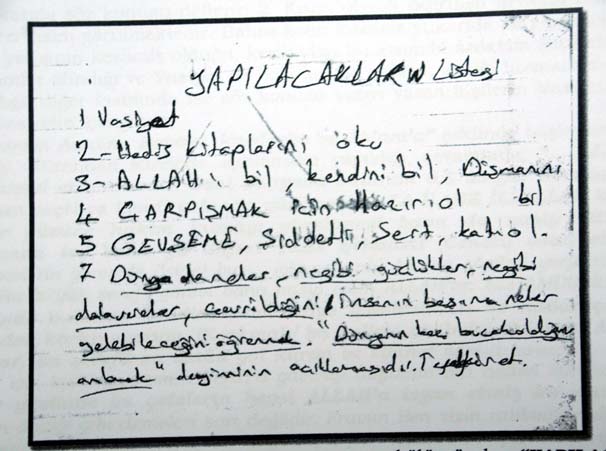 YAPILACAKLARIN Listesi
1 Vasiyet
2- Hadis kitaplarini oku
3- ALLAHı bil, kendini bil, Düsmanini bil
4 ÇARPIŞMAK icin Hazir ol
5 GEVŞEME, Şiddetli, Sert, katı ol.
7 Dünyada neler, negibi güclükler, negibi
dalavereler, cevrildiğini, İnsanin başına neler
gelebileceğini öğrenmek. "Dünyanın kac bucak olduğunu
anlamak" deyiminin aciklamasıdır. Tefekkür et.